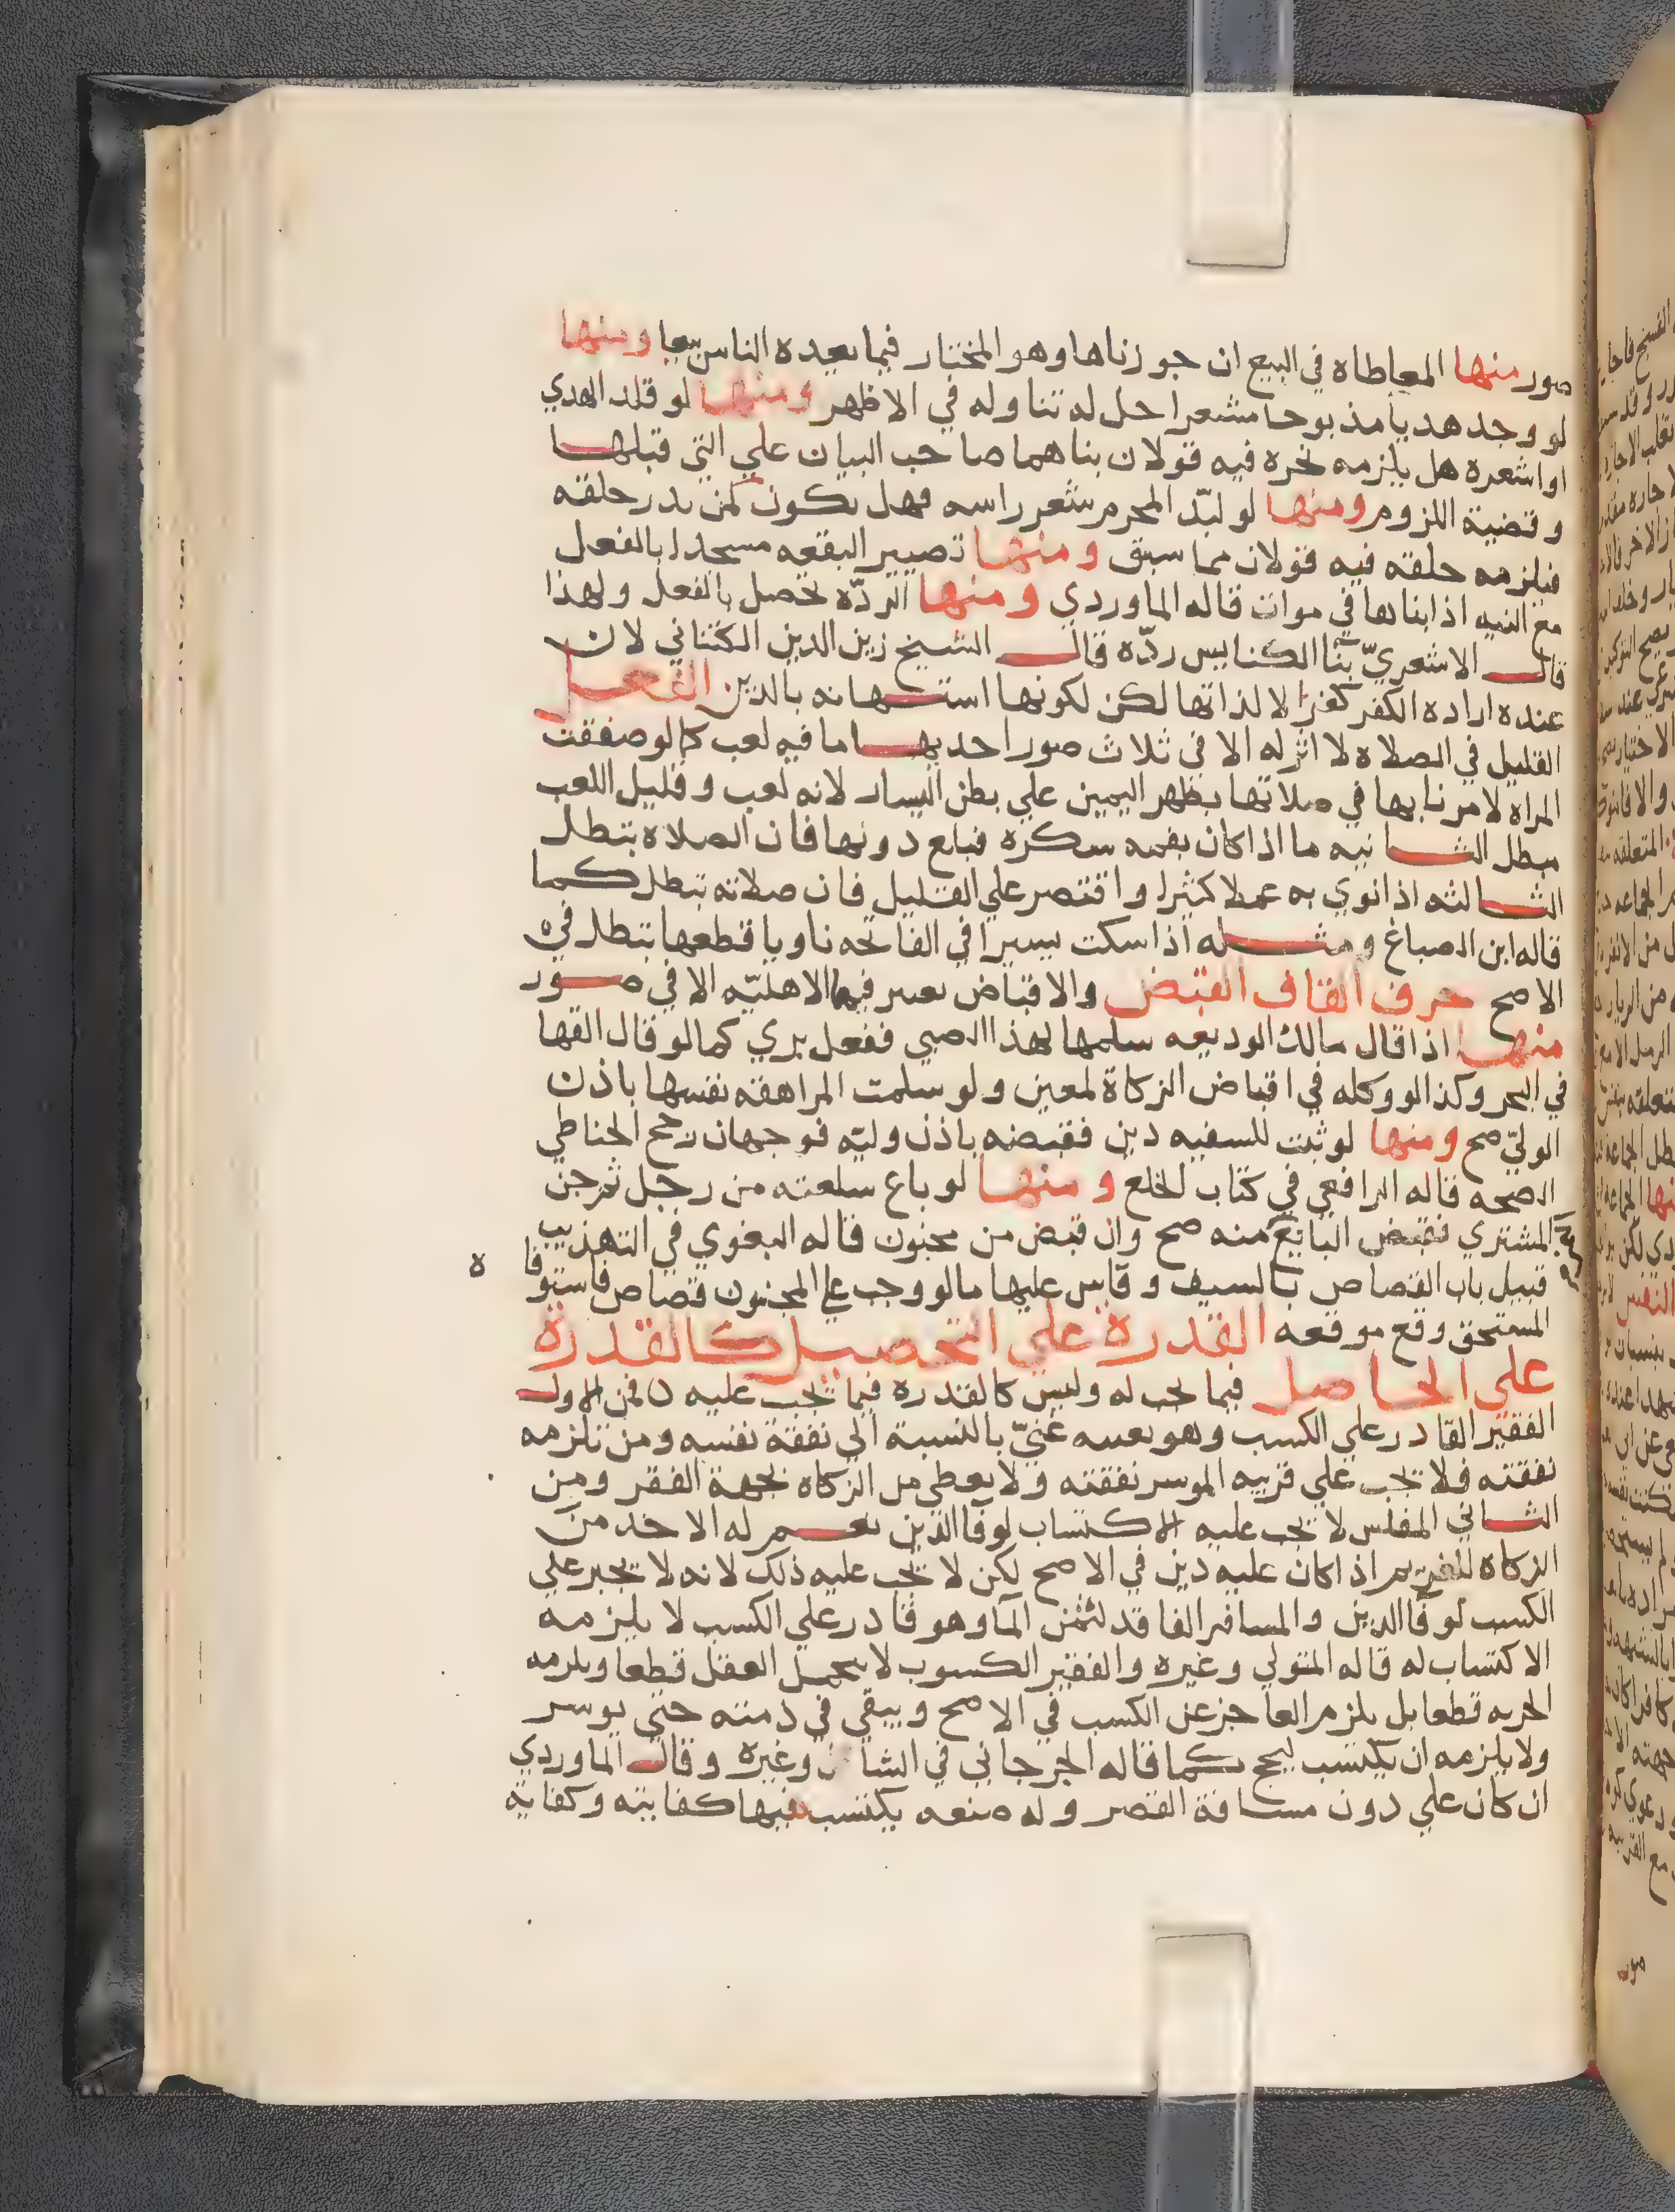 صور منها المعاطاه في البيع ان جوزناها وهو المختار فيما يعده الناس بيعا ومنها
لو وجد هديا مذبوحا مشعرا حل له تناوله في الاظهر ومنها لو قلد الهدي
او اشعره هل يلزمه نحره فيه قولان بناهما صاحب البيان علي التي قبلها
وقضية اللزوم ومنها لو لبّد المحرم شعر راسه فهل يكون كمن ندر حلقه
فيلزمه حلقه فيه قولان مما سبق ومنها تصيير البقعه مسجدا بالفعل
مع النيه اذا بناها في موات قاله الماوردي ومنها الردّه تحصل بالفعل ولهذا
قال الاشعريّ بنا الكنايس ردّه قال الشيخ زين الدين الكتناني لان
عنده اراده الكفر كفرا لا لذاتها لكن لكونها استهانه بالدين الفعل
القليل في الصلاه لا اثر له الا في ثلاث صور احديها ما فيه لعب كما لو صفقت
المراه لامر نابها في صلاتها بظهر اليمين علي بطن اليسار لانه لعب وقليل اللعب
مبطل الثانيه ما اذا كان بفمه سكره فبلع دونها فان الصلاه تبطل
الثالثه اذا نوي به عملا كثيرا واقتصر علي القليل فان صلاته تبطل كما
قاله ابن الصباغ ومثله اذا سكت يسيرا في الفاتحه ناويا قطعها تبطل في
الاصح حرف القاف القبض والاقباض يعتبر فيهما الاهليّه الا في صور
منها اذا قال مالك الوديعه سلمها لهذا الصبي ففعل بري كما لو قال القها
في البحر وكذا لو وكله في اقباض الزكاة لمعين ولو سلمت المراهقه نفسها باذن
الوليّ صح ومنها لو ثبت للسفيه دين فقبضه باذن وليّه فوجهان رجح الحناطي
الصحه قاله الرافعي في كتاب الخلع ومنها لو باع سلعته من رجل ثم جن
المشتري فقبض البايع منه صح وان قبض من مجنون قاله البغوي في التهذيب
قبيل باب القصاص بالسيف وقاس عليها ما لو وجب علي المجنون قصاص فاستوفا
ه
المستحق وقع موقعه القدرة علي التحصيل كالقدرة
علي الحاصل فيما يجب له وليس كالقدره فيما يجب عليه ن فمن الاول
الفقير القادر علي الكسب وهو بعينه غنيّ بالنسبة الي نفقة نفسه ومن تلزمه
نفقته فلا تجب علي قريبه الموسر نفقته ولا يعطي من الزكاه بجهة الفقر ومن
الثاني المفلس لا يجب عليه الاكتساب لوفا الدين نعم له الاخذ من
الزكاه للغريم اذا كان عليه دين في الاصح لكن لا يجب عليه ذلك لانه لا يجبر علي
الكسب لوفا الدين والمسافر الفاقد لثمن الما وهو قادر علي الكسب لا يلزمه
الاكتساب له قاله المتولي وغيره والفقير الكسوب لا يحمل العقل قطعا ويلزمه
الجزيه قطعا بل يلزم العاجز عن الكسب في الاصح ويبقي في ذمته حتي يوسر
ولا يلزمه ان يكتسب ليحج كما قاله الجرجاني في وغيره وقال الماوردي
ان كان علي دون مسافة القصر وله صنعه يكتسب فيها كفايته وكفاية